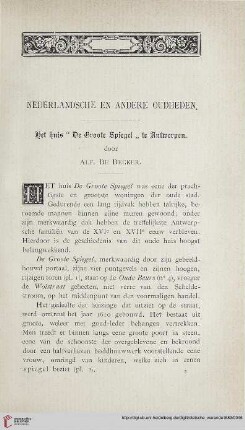 NEDERLANDSCHE EN ANDERE OUDHEDEN.
Het huis “ De Groote Spiegel „ te Antwerpen.
door
ALF. DE DECKER.
HET huis De Groote Spiegel was eene der prach-
tigste en grootste woningen der oude stad.
Gedurende een lang tijdvak hebben talrijke, be-
roemde mannen binnen zijne muren gewoond, onder
zijn merkwaardig dak hebben de treffelijkste Antwerp-
sche familiën van de XVIe en XVIIe eeuw verbleven.
Hierdoor is de geschiedenis van dit oude huis hoogst
belangwaardig.
De Groote Spiegel, merkwaardig door zijn gebeeld-
houwd portaal, zijne vier puntgevels en zijnen hoogen,
spitsigen toren (pl. 1), staat op de Oude Beurs nr
de Wolstraat geheeten, niet verre van den Schelde-
stroom, op het middenpunt van den voormaligen handel.
Het gedeelte der huizinge dat uitziet op de straat,
werd omtrent het jaar 1600 gebouwd. Het bestaat uit
groote, weleer met goud-leder behangen vertrekken.
Men treedt er binnen langs eene groote poort, die zeker
eene van de schoonste der overgeblevene en bekroond
door een halfverheven beeldhouwwerk voorstellende eene
vrouw, omringd van kinderen, welke zich in eenen
spiegel beziet (pl. 2),